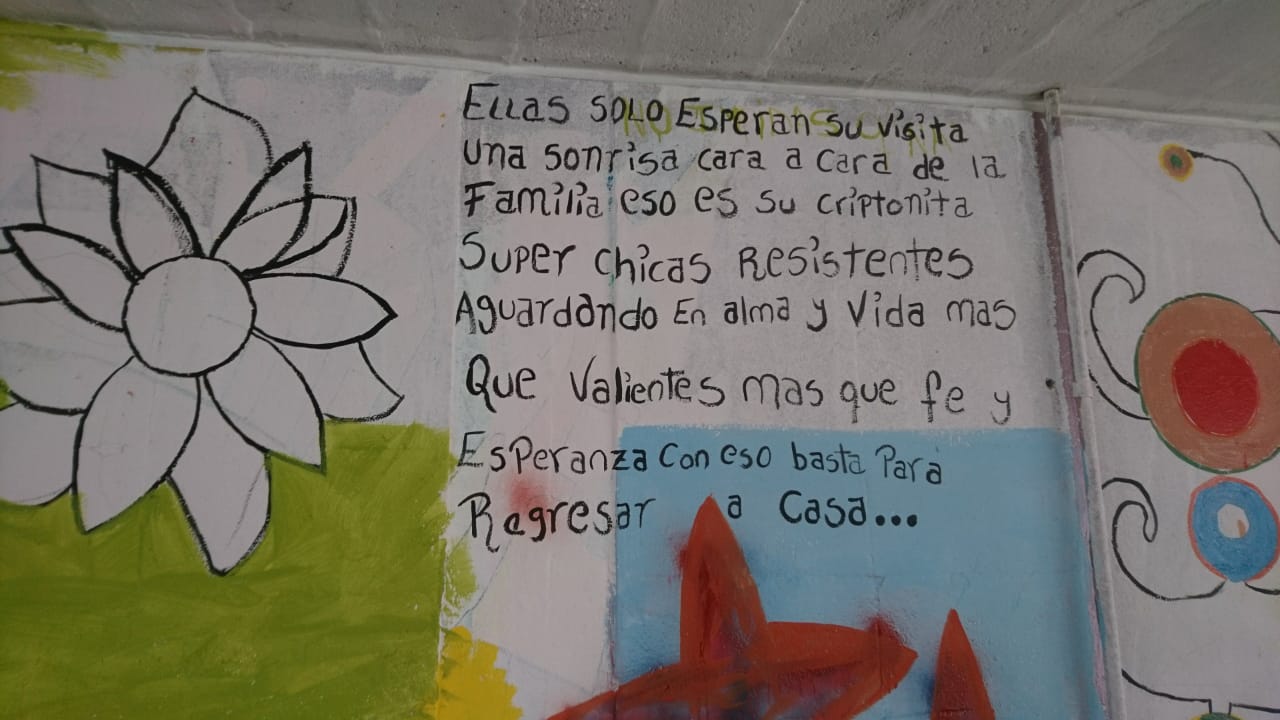 Ellas solo Esperan su visita
una sonrisa cara a cara de la
Familia eso es su criptonita
Super chicas Resistentes
Aguardando En alma y vida mas
Que Valientes mas que fe y
Esperanza con eso basta Para
Regresar a Casa...